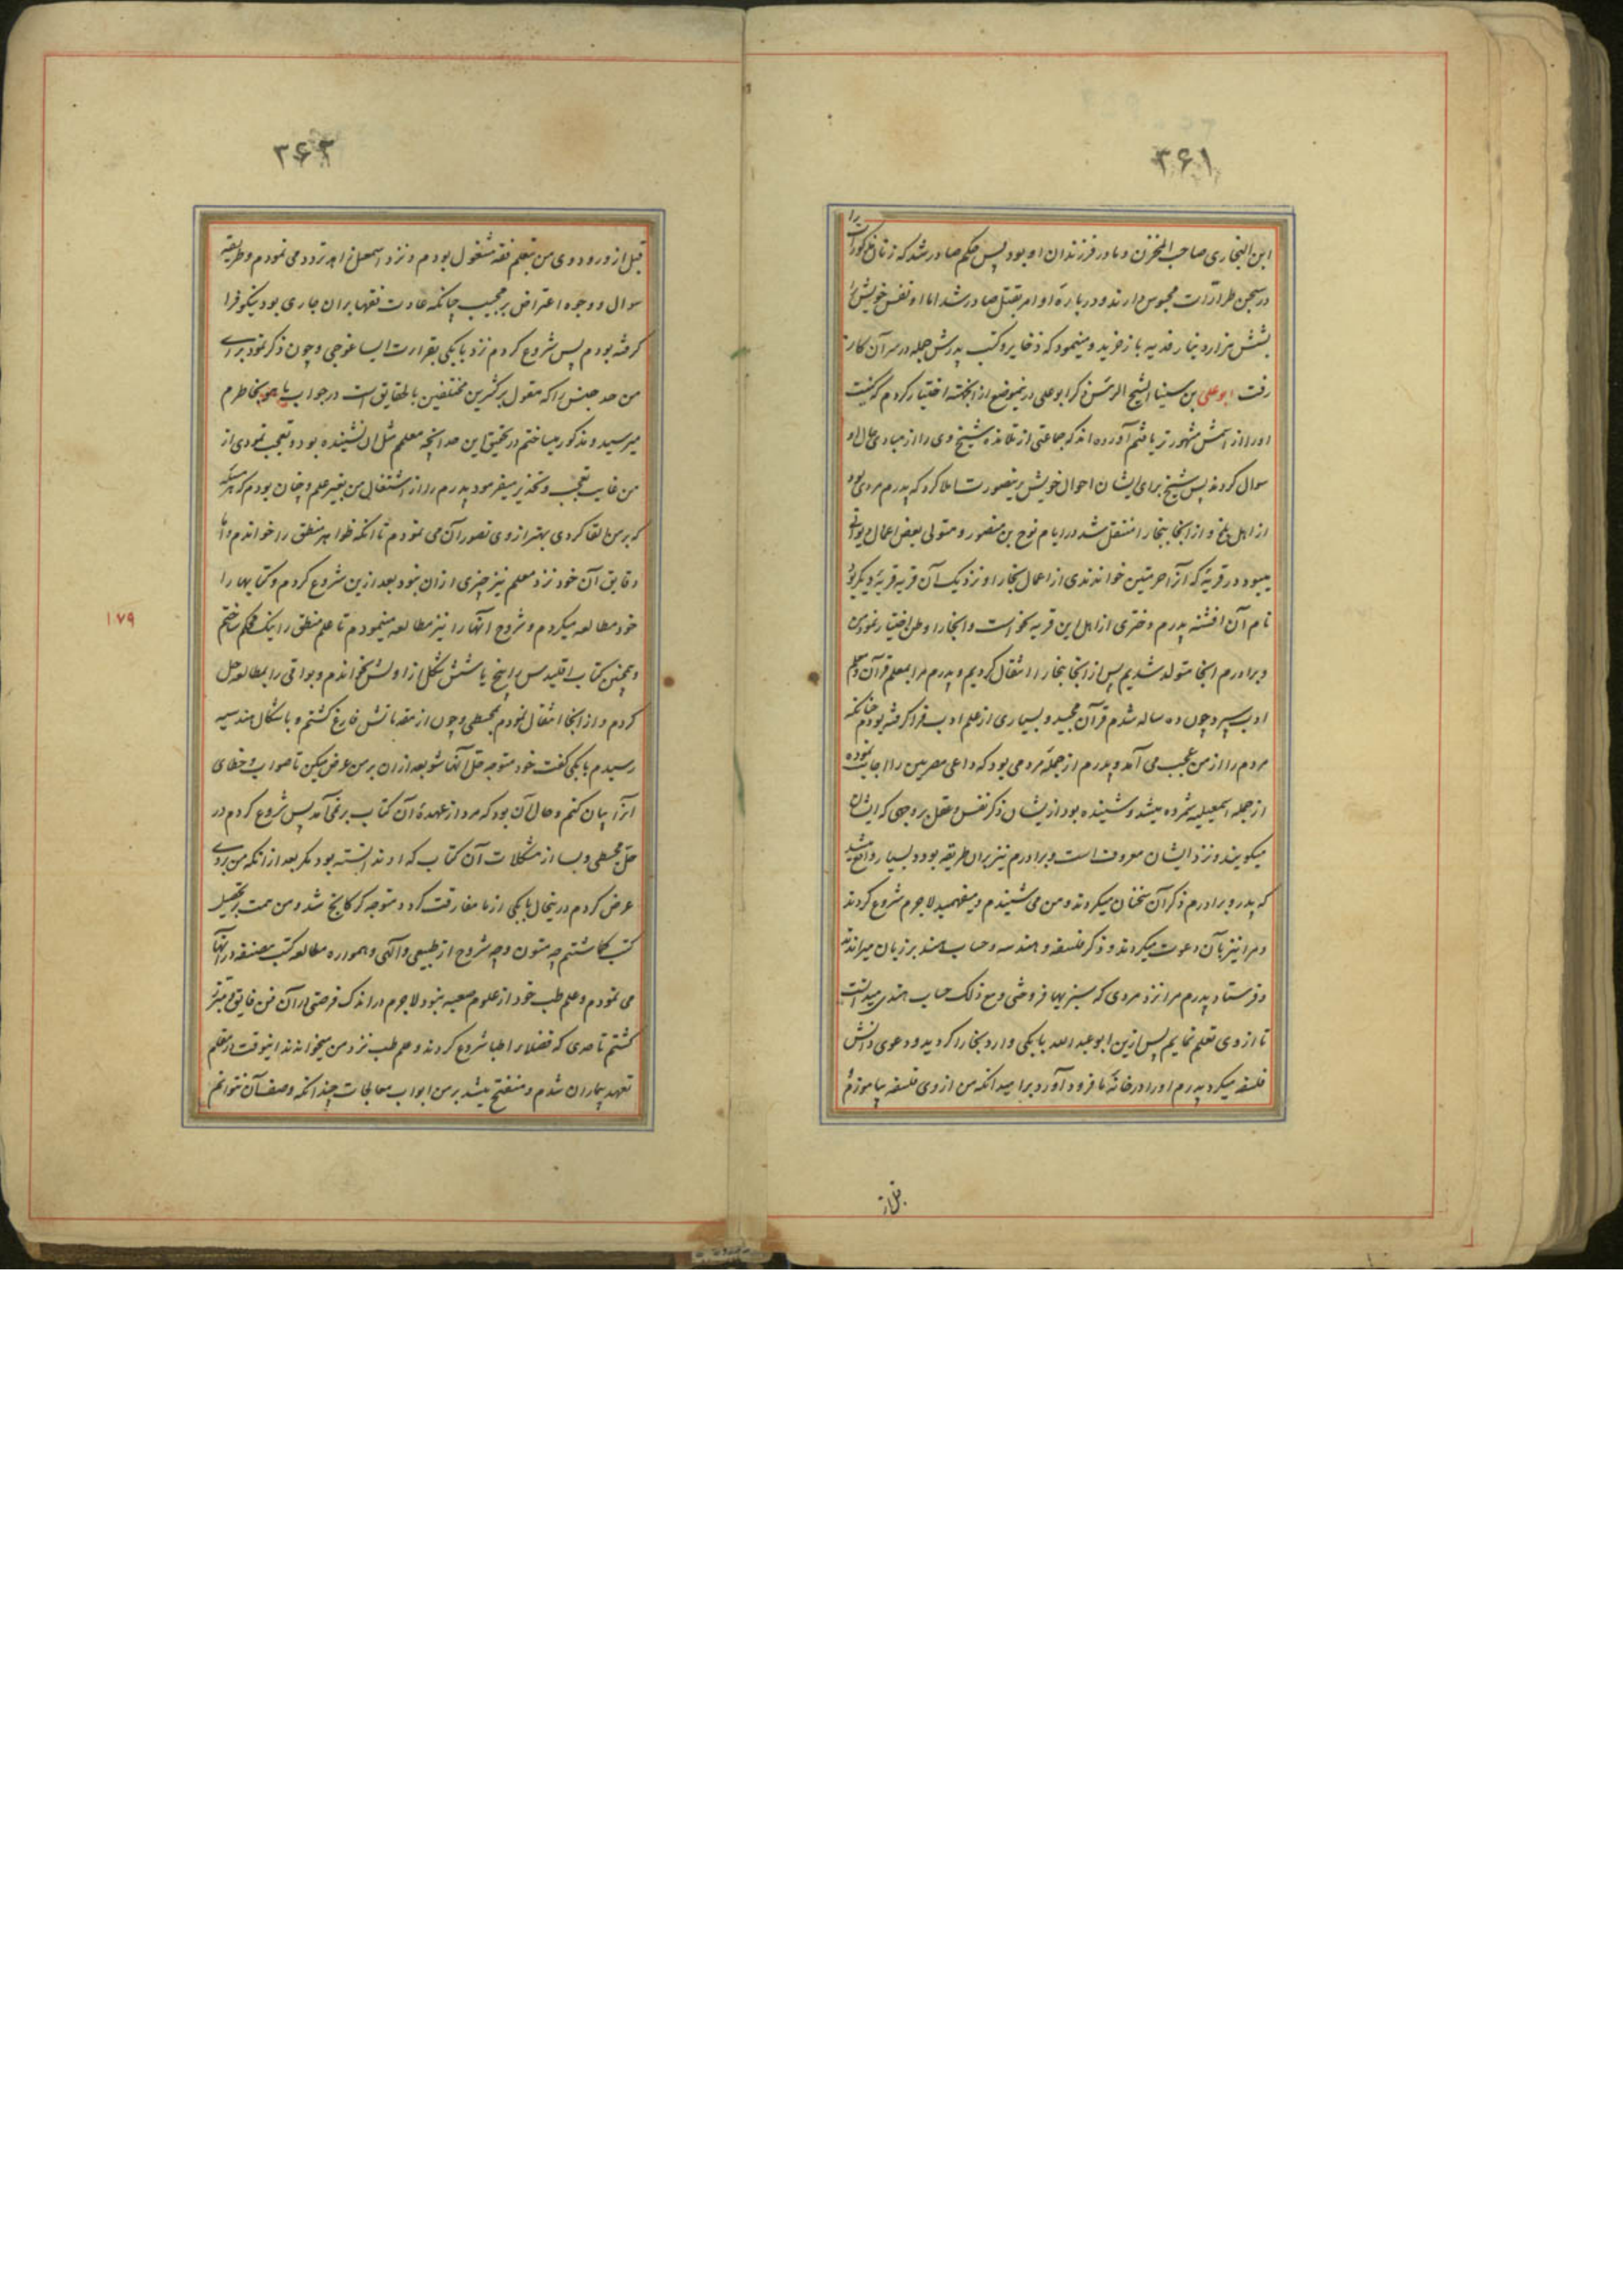 ۳۶۱
ابن البخاری صاحب المخزن و مادر فرزندان او بود پس حکم صادر شد که زنان مذکورات را
در سجن طرارات محبوس دارند و در باره او امر بقتل صادر شد اما او نفس خویش را
بشش هزار دینار فدیه باز خرید و مینمود که ذخایر و کتب پدرش جمله در سر آن کار
رفت ابو علی بن سینا الشیخ الرئیس ذکر ابو علی درینموضع از انجهته اختیار کردم که کنیت
او را از اسمش مشهورتر یافتم آورده اند که جماعتی از تلامذه شیخ وی را از مبادی حال او
سوال کردند پس شیخ برای ایشان احوال خویش برینصورت املا کرد که پدرم مردی بود
از اهل بلخ و از انجا ببخارا منتقل شد در ایام نوح بن منصور و متولی بعض اعمال دیوانی
میبود در قریهٔ که آنرا خرمیثن خوانندی از اعمال بخارا و نزدیک آن قریه قریهٔ دیگر بود
نام آن افشنه پدرم دختری از اهل این قریه بخواست و انجا را وطن اختیار نمود من
و برادرم انجا متولد شدیم پس از انجا ببخارا انتقال کردیم و پدرم مرا بمعلم قرآن و معلم
ادب سپرد چون ده ساله شدم قرآن مجید و بسیاری از علم ادب فرا گرفته بودم چنانکه
مردم را از من عجب می آمد و پدرم از جمله مردمی بود که داعی مصریین را اجابت نموده
از جمله اسمعیلیه شمرده میشد و شنیده بود از یشان ذکر نفس و عقل بر وجهی که ایشان
میگویند و نزد ایشان معروفست و برادرم نیز بران طریقه بود و بسیار واقع میشد
که پدر و برادرم ذکر آن سخنان میکردند و من می شنیدم و میفهمیدم لاجرم شروع کردند
و مرا نیز بآن دعوت میکردند و ذکر فلسفه و هندسه و حساب هند بر زبان میراندند
و فرستاد پدرم مرا نزد مردی که سبزیها فروختی و مع ذلک حساب هندی میدانست
تا از وی تعلم نمایم پس ازین ابو عبد الله بابکی وارد بخارا گردید و دعوی دانش
فلسفه میکرد پدرم او را در خانهٔ ما فرود آورد بر امید انکه من از وی فلسفه بیاموزم
قبل از
۳۶۲
قبل از ورود وی من بتعلم فقه مشغول بودم و نزد اسمعیل زاهد تردد می نمودم و طریقه
سوال و وجوه اعتراض بر مجیب چنانکه عادت فقها بران جاری بود نیکو فرا
گرفته بودم پس شروع کردم نزد بابکی بقراءت ایساغوجی و چون ذکر نمود برای
من حد جنس را که مقول بر کثیرین مختلفین بالحقایق است در جواب ما هو بخاطرم
میرسید و مذکور میساختم در تحقیق این حد انچه معلم مثل آن نشنیده بود و تعجب نمودی از
من غایت تعجب و تحذیر میفرمود پدرم را از اشتغال من بغیر علم و چنان بودم که هر مسئله
که بر من القا کردی بهتر از وی تصور آن می نمودم تا انکه ظواهر منطق را خواندم و اما
دقایق آن خود نزد معلم نیز چیزی از ان نبود بعد ازین شروع کردم و کتابها را
خود مطالعه میکردم و شروح آنها را نیز مطالعه مینمودم تا علم منطق را نیک محکم ساختم
و همچنین کتاب اقلیدس را پنج یا شش شکل از اولش بخواندم و بواقی را بمطالعه حل
کردم و از انجا انتقال نمودم بمجسطی و چون از مقدماتش فارغ گشتم و باشکال هندسیه
رسیدم بابکی گفت خود متوجه حل آنها شو بعد از ان بر من عرض میکن تا صواب و خطای
آنرا بیان کنم و حال آن بود که مرد از عهدهٔ آن کتاب بر نمی آمد پس شروع کردم در
حل مجسطی و بسا از مشکلات آن کتاب که او ندانسته بود مگر بعد از انکه من بر وی
عرض کردم درینحال بابکی از ما مفارقت کرد و متوجه کرکانج شد و من همت بر تحصیل
کتب گماشتم چه متون و چه شروح از طبیعی و الهی و همواره مطالعه کتب مصنفه در آنها
می نمودم و علم طب خود از علوم صعبه نبود لاجرم در اندک فرصتی در آن فن فایق و مبرز
گشتم تا حدی که فضلاء اطبا شروع کردند و علم طب نزد من میخواندند اینوقت از معلم
تعهد بیماران شدم و منفتح میشد بر من ابواب معالجات چندانکه وصف آن نتوانم
۱۷۹